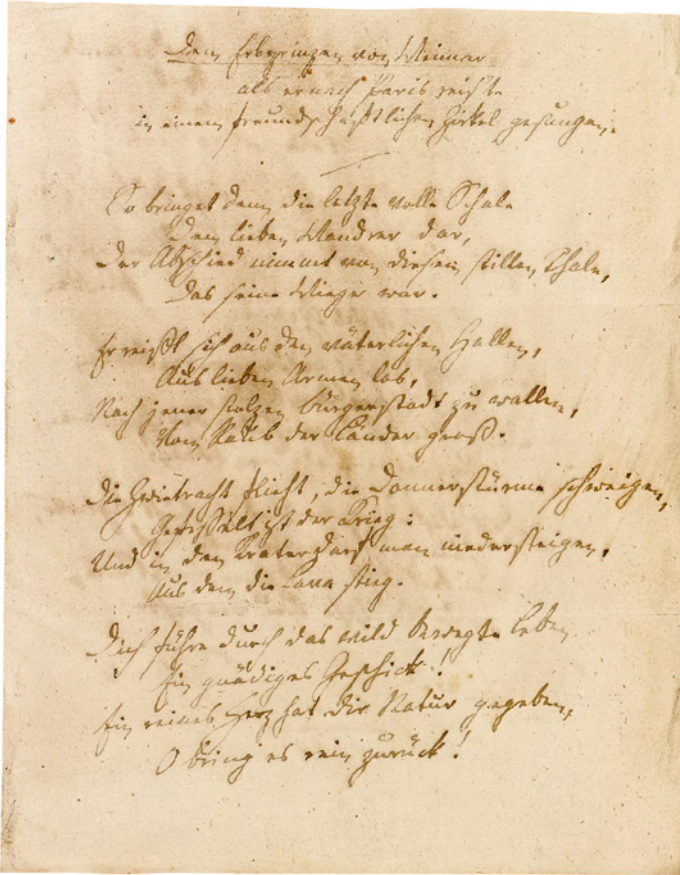 Dem Erbprinzen von Weimar
als er nach Paris reis'te
in einem freundschaftlichen Zirkel gesungen.
So bringet denn die letzte volle Schale
Dem lieben Wandrer dar,
Der Abschied nimmt von diesem stillen Thale,
Das seine Wiege war.
Er reißt sich aus den väterlichen Hallen,
Aus lieben Armen los,
Nach jener stolzen Bürgerstadt zu wallen,
Vom Raub der Länder groß.
Die Zwietracht flieht, die Donnerstürme schweigen,
Gefesselt ist der Krieg;
Und in den Krater darf man niedersteigen,
Aus dem die Lava stieg.
Dich führe durch das wild bewegte Leben
Ein gnädiges Geschick!
Ein reines Herz hat dir Natur gegeben,
O bring es rein zurück!